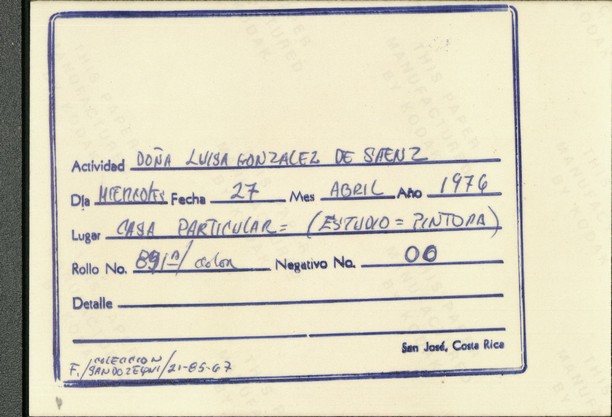 Actividad DOÑA LUISA GONZALEZ DE SAENZ
Día MIERCOLES Fecha 27 Mes ABRIL Año 1976
Lugar CASA PARTICULAR = (ESTUDIO = PINTORA)
Rollo No. 891A/ color Negativo No. 00
Detalle
San José, Costa Rica
COLECCION
F./ /21-85-67
THIS PAPER
MANUFACTURED
BY KODAK